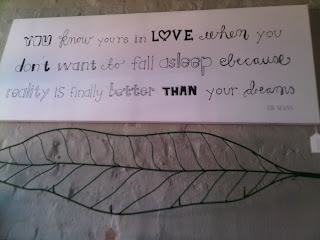 YOU know yours in LOVE when you
don't want to fall asleep ebecause
reality IS finally better THAN your dreams
DR SEUSS